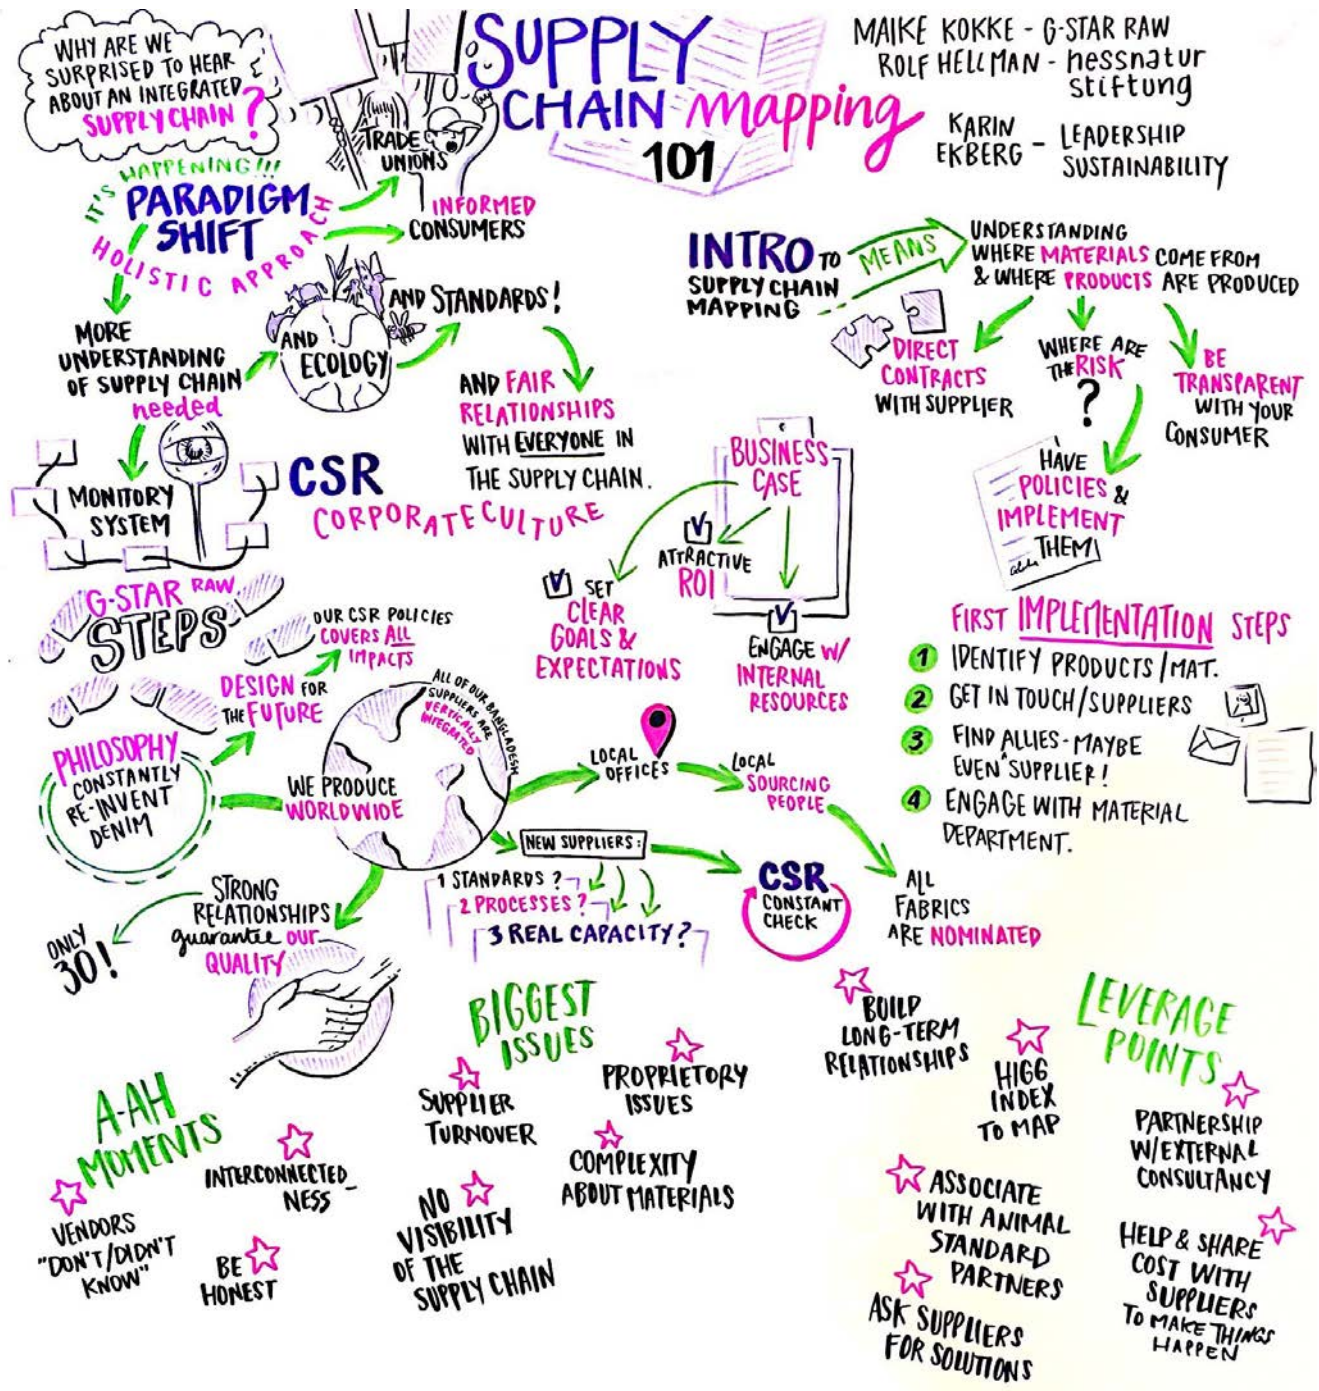 WHY ARE WE
SURPRISED TO HEAR
ABOUT AN INTEGRATED
SUPPLY CHAIN ?
SUPPLY
CHAIN mapping
101
MAIKE KOKKE - G-STAR RAW
ROLF HELLMAN - hessnatur
stiftung
KARIN
EKBERG - LEADERSHIP
SUSTAINABILITY
TRADE
UNIONS
IT'S HAPPENING!!!
PARADIGM
SHIFT
HOLISTIC APPROACH
INFORMED
CONSUMERS
MORE
UNDERSTANDING
OF SUPPLY CHAIN
needed
AND
ECOLOGY
AND STANDARDS!
AND FAIR
RELATIONSHIPS
WITH EVERYONE IN
THE SUPPLY CHAIN.
MONITORY
SYSTEM
CSR
CORPORATE CULTURE
INTRO TO
SUPPLY CHAIN
MAPPING
MEANS
UNDERSTANDING
WHERE MATERIALS COME FROM
& WHERE PRODUCTS ARE PRODUCED
DIRECT
CONTRACTS
WITH SUPPLIER
WHERE ARE
THE RISK
?
BE
TRANSPARENT
WITH YOUR
CONSUMER
HAVE
POLICIES &
IMPLEMENT
THEM
BUSINESS
CASE
SET
CLEAR
GOALS &
EXPECTATIONS
ATTRACTIVE
ROI
ENGAGE W/
INTERNAL
RESOURCES
FIRST IMPLEMENTATION STEPS
1 IDENTIFY PRODUCTS/MAT.
2 GET IN TOUCH/SUPPLIERS
3 FIND ALLIES - MAYBE
EVEN SUPPLIER!
4 ENGAGE WITH MATERIAL
DEPARTMENT.
G-STAR RAW
STEPS
PHILOSOPHY
CONSTANTLY
RE-INVENT
DENIM
DESIGN FOR
THE FUTURE
OUR CSR POLICIES
COVERS ALL
IMPACTS
WE PRODUCE
WORLDWIDE
ALL OF OUR BANGLADESH
SUPPLIERS ARE
VERTICALLY
INTEGRATED
LOCAL
OFFICES
LOCAL
SOURCING
PEOPLE
ALL
FABRICS
ARE NOMINATED
NEW SUPPLIERS:
1 STANDARDS?
2 PROCESSES?
3 REAL CAPACITY?
CSR
CONSTANT
CHECK
STRONG
RELATIONSHIPS
guarantee our
QUALITY
ONLY
30!
A-AH
MOMENTS
VENDORS
"DON'T/DIDN'T
KNOW"
INTERCONNECTED_
NESS
BE
HONEST
BIGGEST
ISSUES
SUPPLIER
TURNOVER
PROPRIETORY
ISSUES
COMPLEXITY
ABOUT MATERIALS
NO
VISIBILITY
OF THE
SUPPLY CHAIN
LEVERAGE
POINTS
BUILD
LONG-TERM
RELATIONSHIPS
HIGG
INDEX
TO MAP
PARTNERSHIP
W/EXTERNAL
CONSULTANCY
ASSOCIATE
WITH ANIMAL
STANDARD
PARTNERS
HELP & SHARE
COST WITH
SUPPLIERS
TO MAKE THINGS
HAPPEN
ASK SUPPLIERS
FOR SOLUTIONS